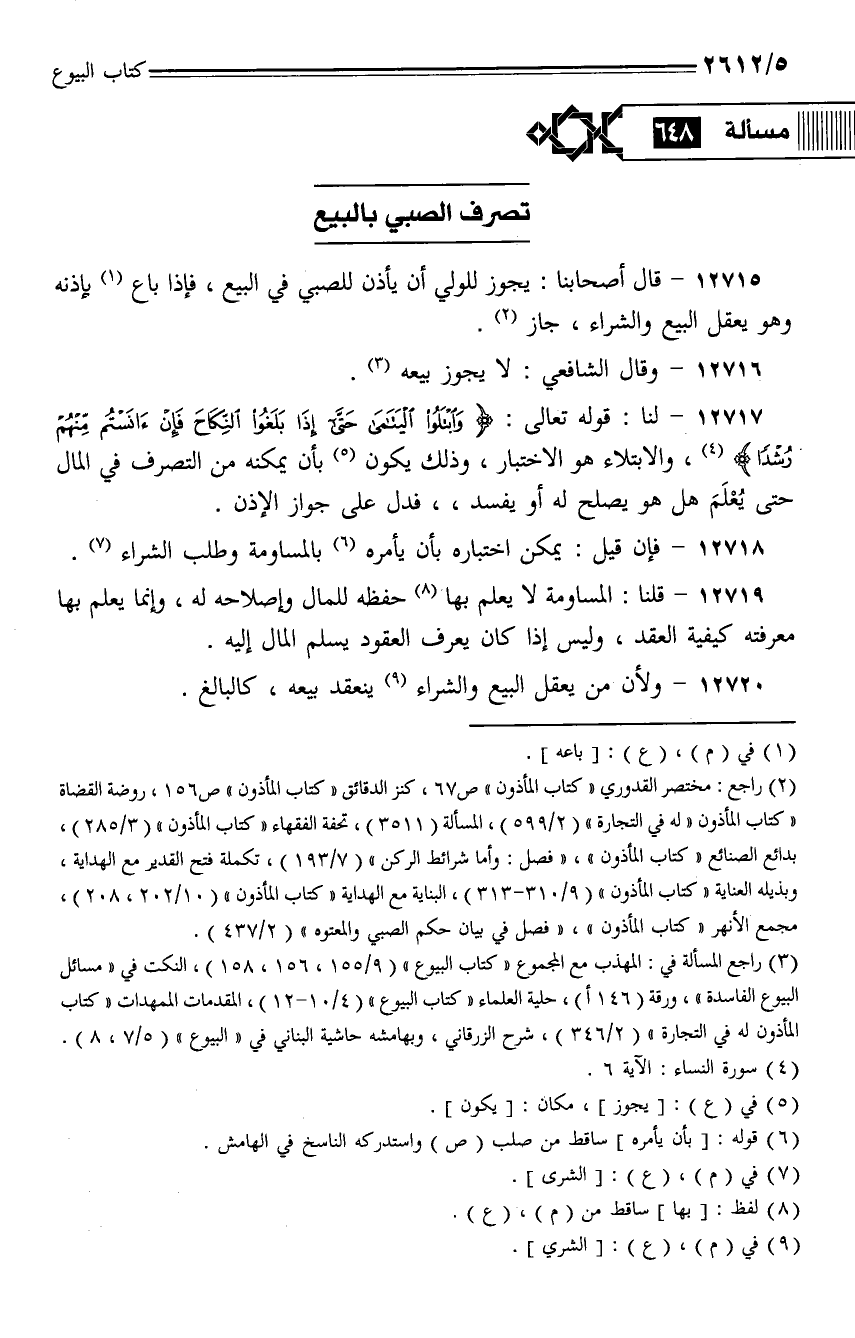 ٢٦١٢/٥ كتاب البيوع
مسألة ٦٤٨
تصرف الصبي بالبيع
١٢٧١٥ - قال أصحابنا : يجوز للولي أن يأذن للصبي في البيع ، فإذا باع (١) بإذنه
وهو يعقل البيع والشراء ، جاز (٢) .
١٢٧١٦ - وقال الشافعي : لا يجوز بيعه (٣) .
١٢٧١٧ - لنا : قوله تعالى : ﴿ وَٱبْتَلُوا۟ ٱلْيَتَـٰمَىٰ حَتَّىٰٓ إِذَا بَلَغُوا۟ ٱلنِّكَاحَ فَإِنْ ءَانَسْتُم مِّنْهُمْ
رُشْدًا ﴾ (٤) ، والابتلاء هو الاختبار ، وذلك يكون (٥) بأن يمكنه من التصرف في المال
حتى يُعْلَمَ هل هو يصلح له أو يفسد ، ، فدل على جواز الإذن .
١٢٧١٨ - فإن قيل : يمكن اختباره بأن يأمره (٦) بالمساومة وطلب الشراء (٧) .
١٢٧١٩ - قلنا : المساومة لا يعلم بها (٨) حفظه للمال وإصلاحه له ، وإنما يعلم بها
معرفته كيفية العقد ، وليس إذا كان يعرف العقود يسلم المال إليه .
١٢٧٢٠ - ولأن من يعقل البيع والشراء (٩) ينعقد بيعه ، كالبالغ .
(١) في ( م ) ، ( ع ) : [ باعه ] .
(٢) راجع : مختصر القدوري « كتاب المأذون » ص٦٧ ، كنز الدقائق « كتاب المأذون » ص١٥٦ ، روضة القضاة
« كتاب المأذون « له في التجارة » ( ٥٩٩/٢ ) ، المسألة ( ٣٥١١ ) ، تحفة الفقهاء « كتاب المأذون » ( ٢٨٥/٣ ) ،
بدائع الصنائع « كتاب المأذون » ، « فصل : وأما شرائط الركن » ( ١٩٣/٧ ) ، تكملة فتح القدير مع الهداية ،
وبذيله العناية « كتاب المأذون » ( ٣١٠/٩-٣١٣ ) ، البناية مع الهداية « كتاب المأذون » ( ٢٠٢/١٠ ، ٢٠٨ ) ،
مجمع الأنهر « كتاب المأذون » ، « فصل في بيان حكم الصبي والمعتوه » ( ٤٣٧/٢ ) .
(٣) راجع المسألة في : المهذب مع المجموع « كتاب البيوع » ( ١٥٥/٩ ، ١٥٦ ، ١٥٨ ) ، النكت في « مسائل
البيوع الفاسدة » ، ورقة ( ١٤٦ أ ) ، حلية العلماء « كتاب البيوع » ( ١٠/٤-١٢ ) ، المقدمات الممهدات « كتاب
المأذون له في التجارة » ( ٣٤٦/٢ ) ، شرح الزرقاني ، وبهامشه حاشية البناني في « البيوع » ( ٧/٥ ، ٨ ) .
(٤) سورة النساء : الآية ٦ .
(٥) في ( ع ) : [ يجوز ] ، مكان : [ يكون ] .
(٦) قوله : [ بأن يأمره ] ساقط من صلب ( ص ) واستدركه الناسخ في الهامش .
(٧) في ( م ) ، ( ع ) : [ الشرى ] .
(٨) لفظ : [ بها ] ساقط من ( م ) ، ( ع ) .
(٩) في ( م ) ، ( ع ) : [ الشري ] .